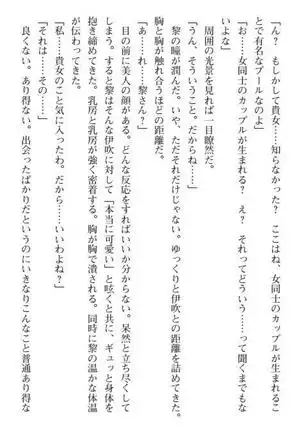 「ん？　もしかして貴女……知らなかった？　ここはね、女同士のカップルが生まれるこ
とで有名なプールなのよ」
「お……女同士のカップルが生まれる？　え？　それってどういう……って聞くまでもな
いよな」
周囲の光景を見れば一目瞭然だ。
「うん。そういうこと。だからね……」
黎の瞳が潤んだ。いや、ただそれだけじゃない。ゆっくりと伊吹との距離を詰めてきた。
胸と胸が触れ合うほどの距離だ。
「あ……れ……黎さん？」
目の前に美人の顔がある。どんな反応をすればいいか分からない。呆然と立ち尽くして
しまう。すると黎はそんな伊吹に対して「本当に可愛い」と呟くと共に、ギュッと身体を
抱き締めてきた。乳房と乳房が強く密着する。胸が胸で潰される。同時に黎の温かな体温
が伝わってきた。
「私……貴女のこと気に入ったわ。だから……いいわよね？」
「それは……その……」
良くない。あり得ない。出会ったばかりだというのにいきなりこんなこと普通あり得な